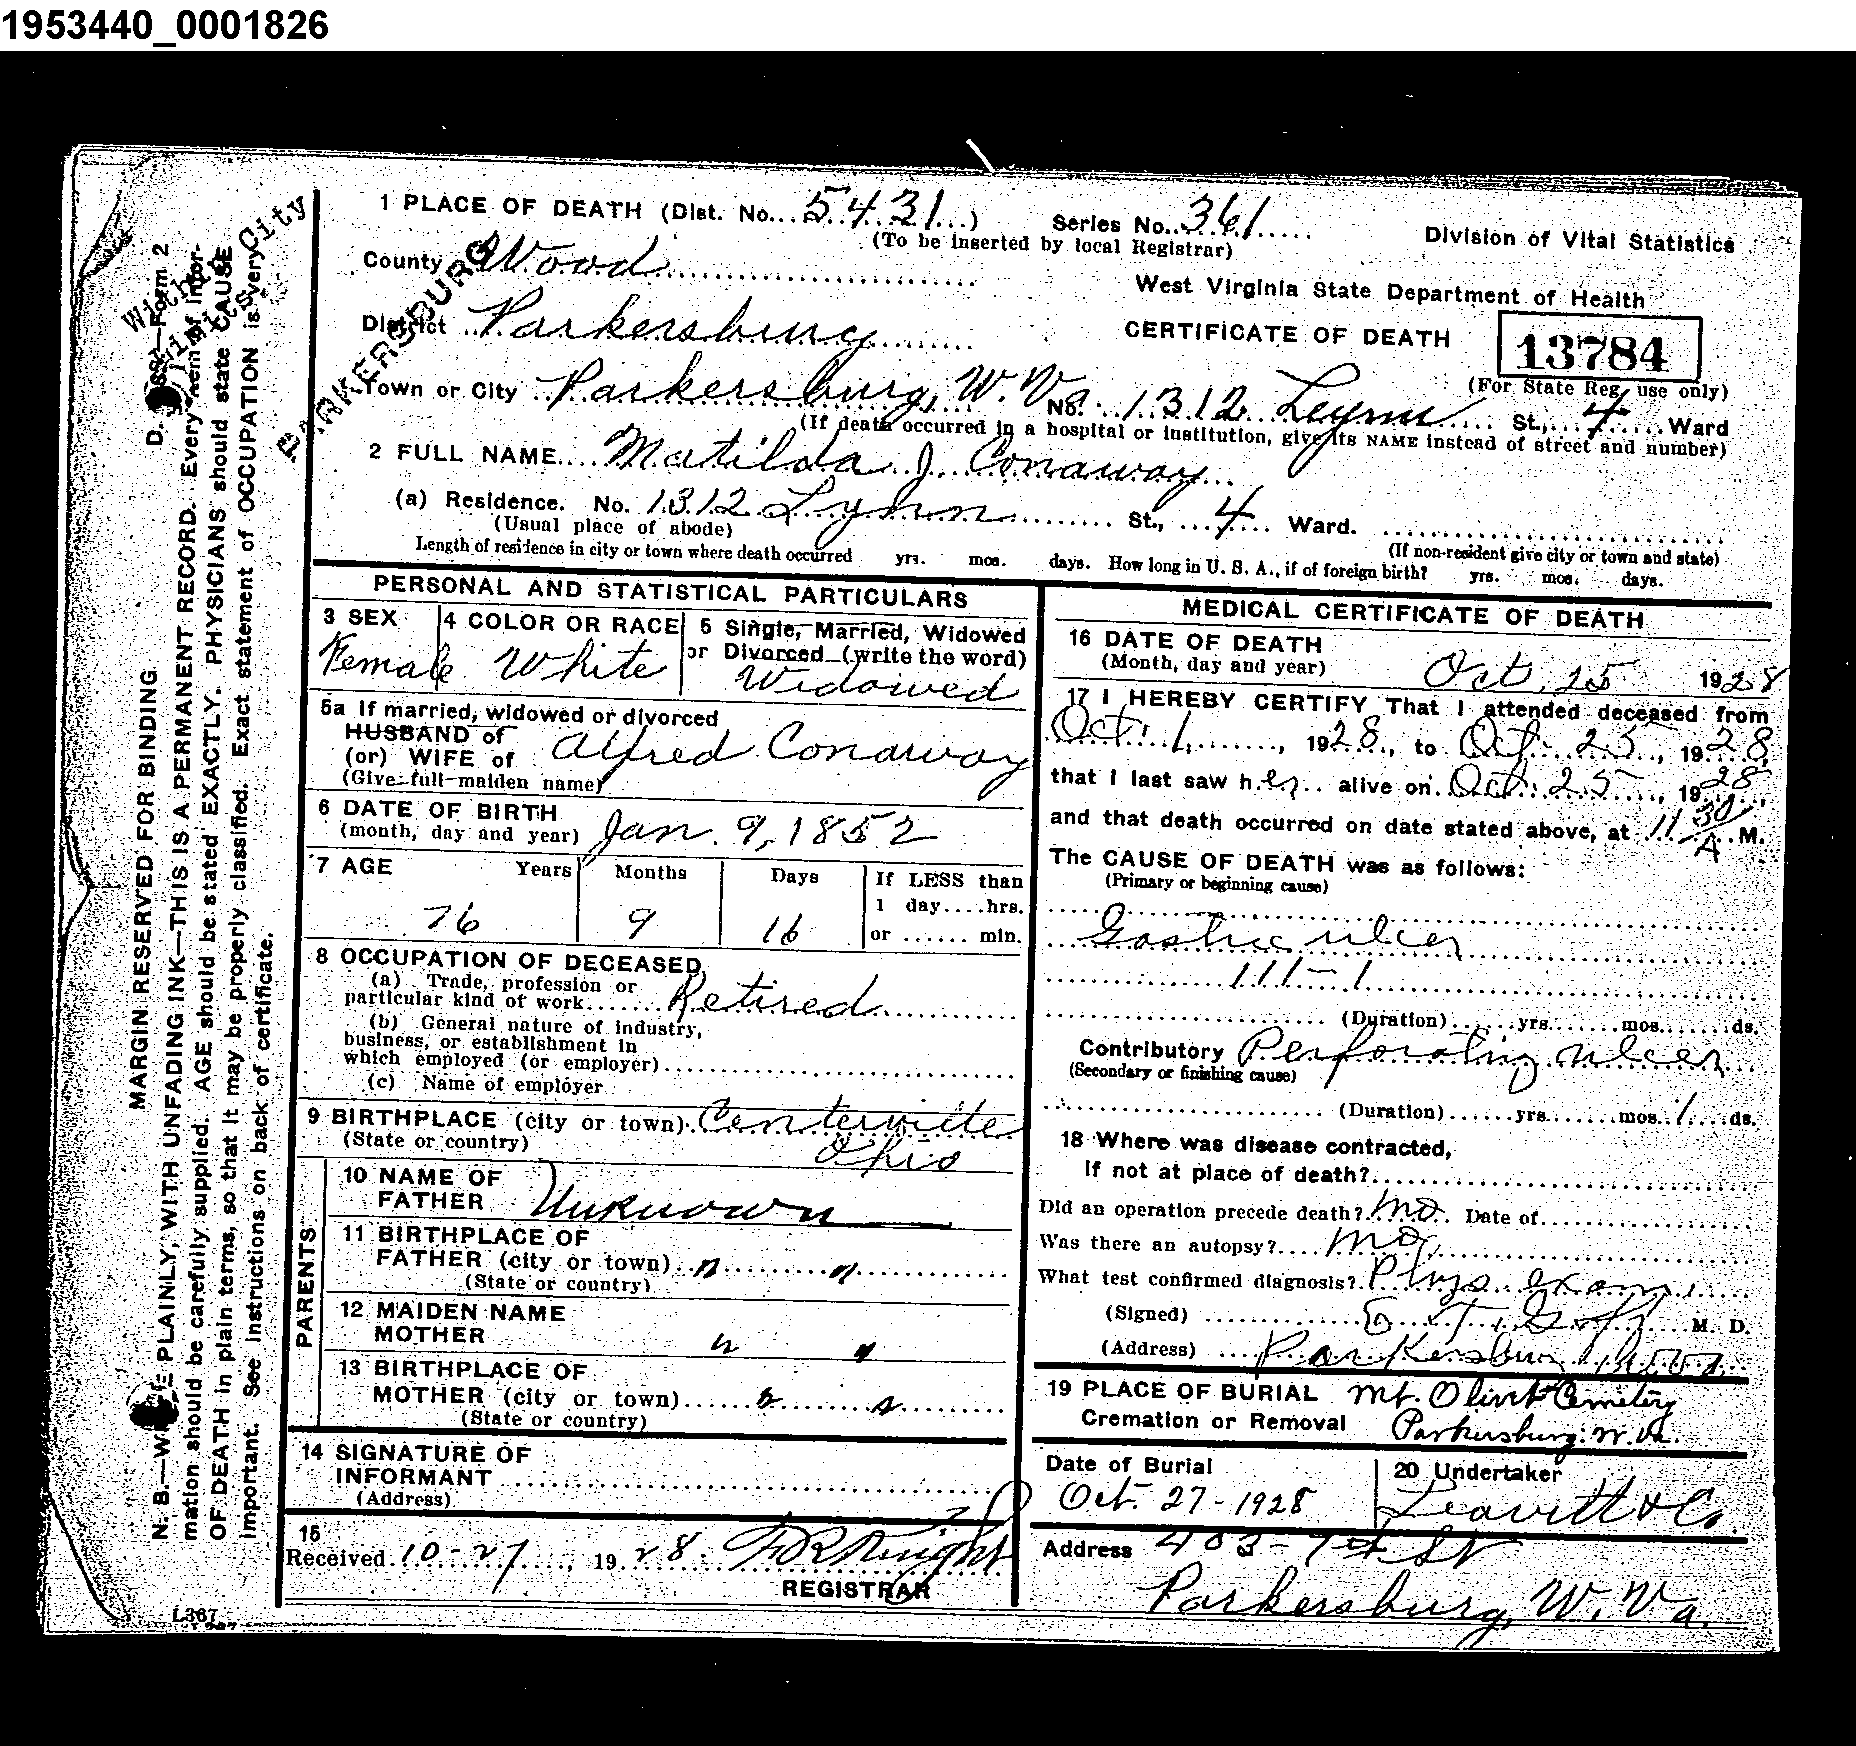 1953440_0001826
1 PLACE OF DEATH (Dist. No. 5431)
Series No. 361
(To be inserted by local Registrar)
Division of Vital Statistics
County Wood
West Virginia State Department of Health
District Parkersburg
CERTIFICATE OF DEATH
13784
(For State Reg. use only)
Town or City Parkersburg, W. Va. No. 1312 Lynn St., 4 Ward
(If death occurred in a hospital or institution, give its NAME instead of street and number)
2 FULL NAME Matilda J Conaway
(a) Residence. No. 1312 Lynn St., 4 Ward.
(Usual place of abode)
(If non-resident give city or town and state)
Length of residence in city or town where death occurred yrs. mos. days. How long in U. S. A., if of foreign birth? yrs. mos. days.
PARKERSBURG
Within
City
Limits
D. Form 2
MARGIN RESERVED FOR BINDING
N. B.—WRITE PLAINLY, WITH UNFADING INK—THIS IS A PERMANENT RECORD. Every item of infor-
mation should be carefully supplied. AGE should be stated EXACTLY. PHYSICIANS should state CAUSE
OF DEATH in plain terms, so that it may be properly classified. Exact statement of OCCUPATION is very
important. See instructions on back of certificate.
PERSONAL AND STATISTICAL PARTICULARS
3 SEX
Female
4 COLOR OR RACE
White
5 Single, Married, Widowed
or Divorced (write the word)
Widowed
5a If married, widowed or divorced
HUSBAND of
(or) WIFE of Alfred Conaway
(Give full maiden name)
6 DATE OF BIRTH
(month, day and year) Jan. 9, 1852
7 AGE Years Months Days If LESS than
1 day....hrs.
or ...... min.
76 9 16
8 OCCUPATION OF DECEASED
(a) Trade, profession or
particular kind of work Retired
(b) General nature of industry,
business, or establishment in
which employed (or employer)
(c) Name of employer
9 BIRTHPLACE (city or town) Centerville
(State or country) Ohio
PARENTS
10 NAME OF
FATHER Unknown
11 BIRTHPLACE OF
FATHER (city or town) " "
(State or country)
12 MAIDEN NAME
MOTHER " "
13 BIRTHPLACE OF
MOTHER (city or town) " "
(State or country)
14 SIGNATURE OF
INFORMANT
(Address)
15
Received 10-27, 1928. Knight
REGISTRAR
L367
MEDICAL CERTIFICATE OF DEATH
16 DATE OF DEATH
(Month, day and year) Oct. 25 1928
17 I HEREBY CERTIFY That I attended deceased from
Oct. 1, 1928, to Oct. 25, 1928,
that I last saw her alive on Oct. 25, 1928,
and that death occurred on date stated above, at 11 30 A M.
The CAUSE OF DEATH was as follows:
(Primary or beginning cause)
Gastric ulcer
111-1
(Duration) yrs. mos. ds.
Contributory Perforating ulcer
(Secondary or finishing cause)
(Duration) yrs. mos. 1 ds.
18 Where was disease contracted,
if not at place of death?
Did an operation precede death? no. Date of
Was there an autopsy? no,
What test confirmed diagnosis? Phys. exam.
(Signed) T. Goff M. D.
(Address) Parkersburg W Va.
19 PLACE OF BURIAL Mt. Olivet Cemetery
Cremation or Removal Parkersburg. W. Va.
Date of Burial
Oct. 27-1928
20 Undertaker
Leavitt & Co.
Address 403-7th St
Parkersburg, W. Va.